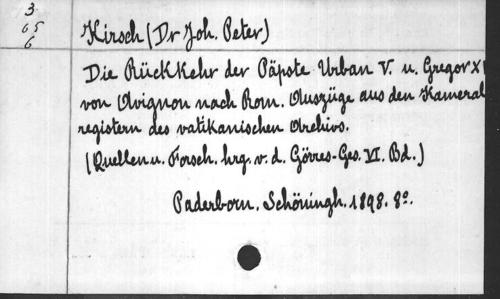 3
65
6
Kirsch (Dr Joh. Peter)
Die Rückkehr der Päpste Urban V. u. Gregor XI
von Avignon nach Rom. Auszüge aus den Kameral
registern des vatikanischen Archivs.
(Quellen u. Forsch. hrg. v. d. Görres-Ges. VI. Bd.)
Paderborn. Schöningh. 1898. 8º.